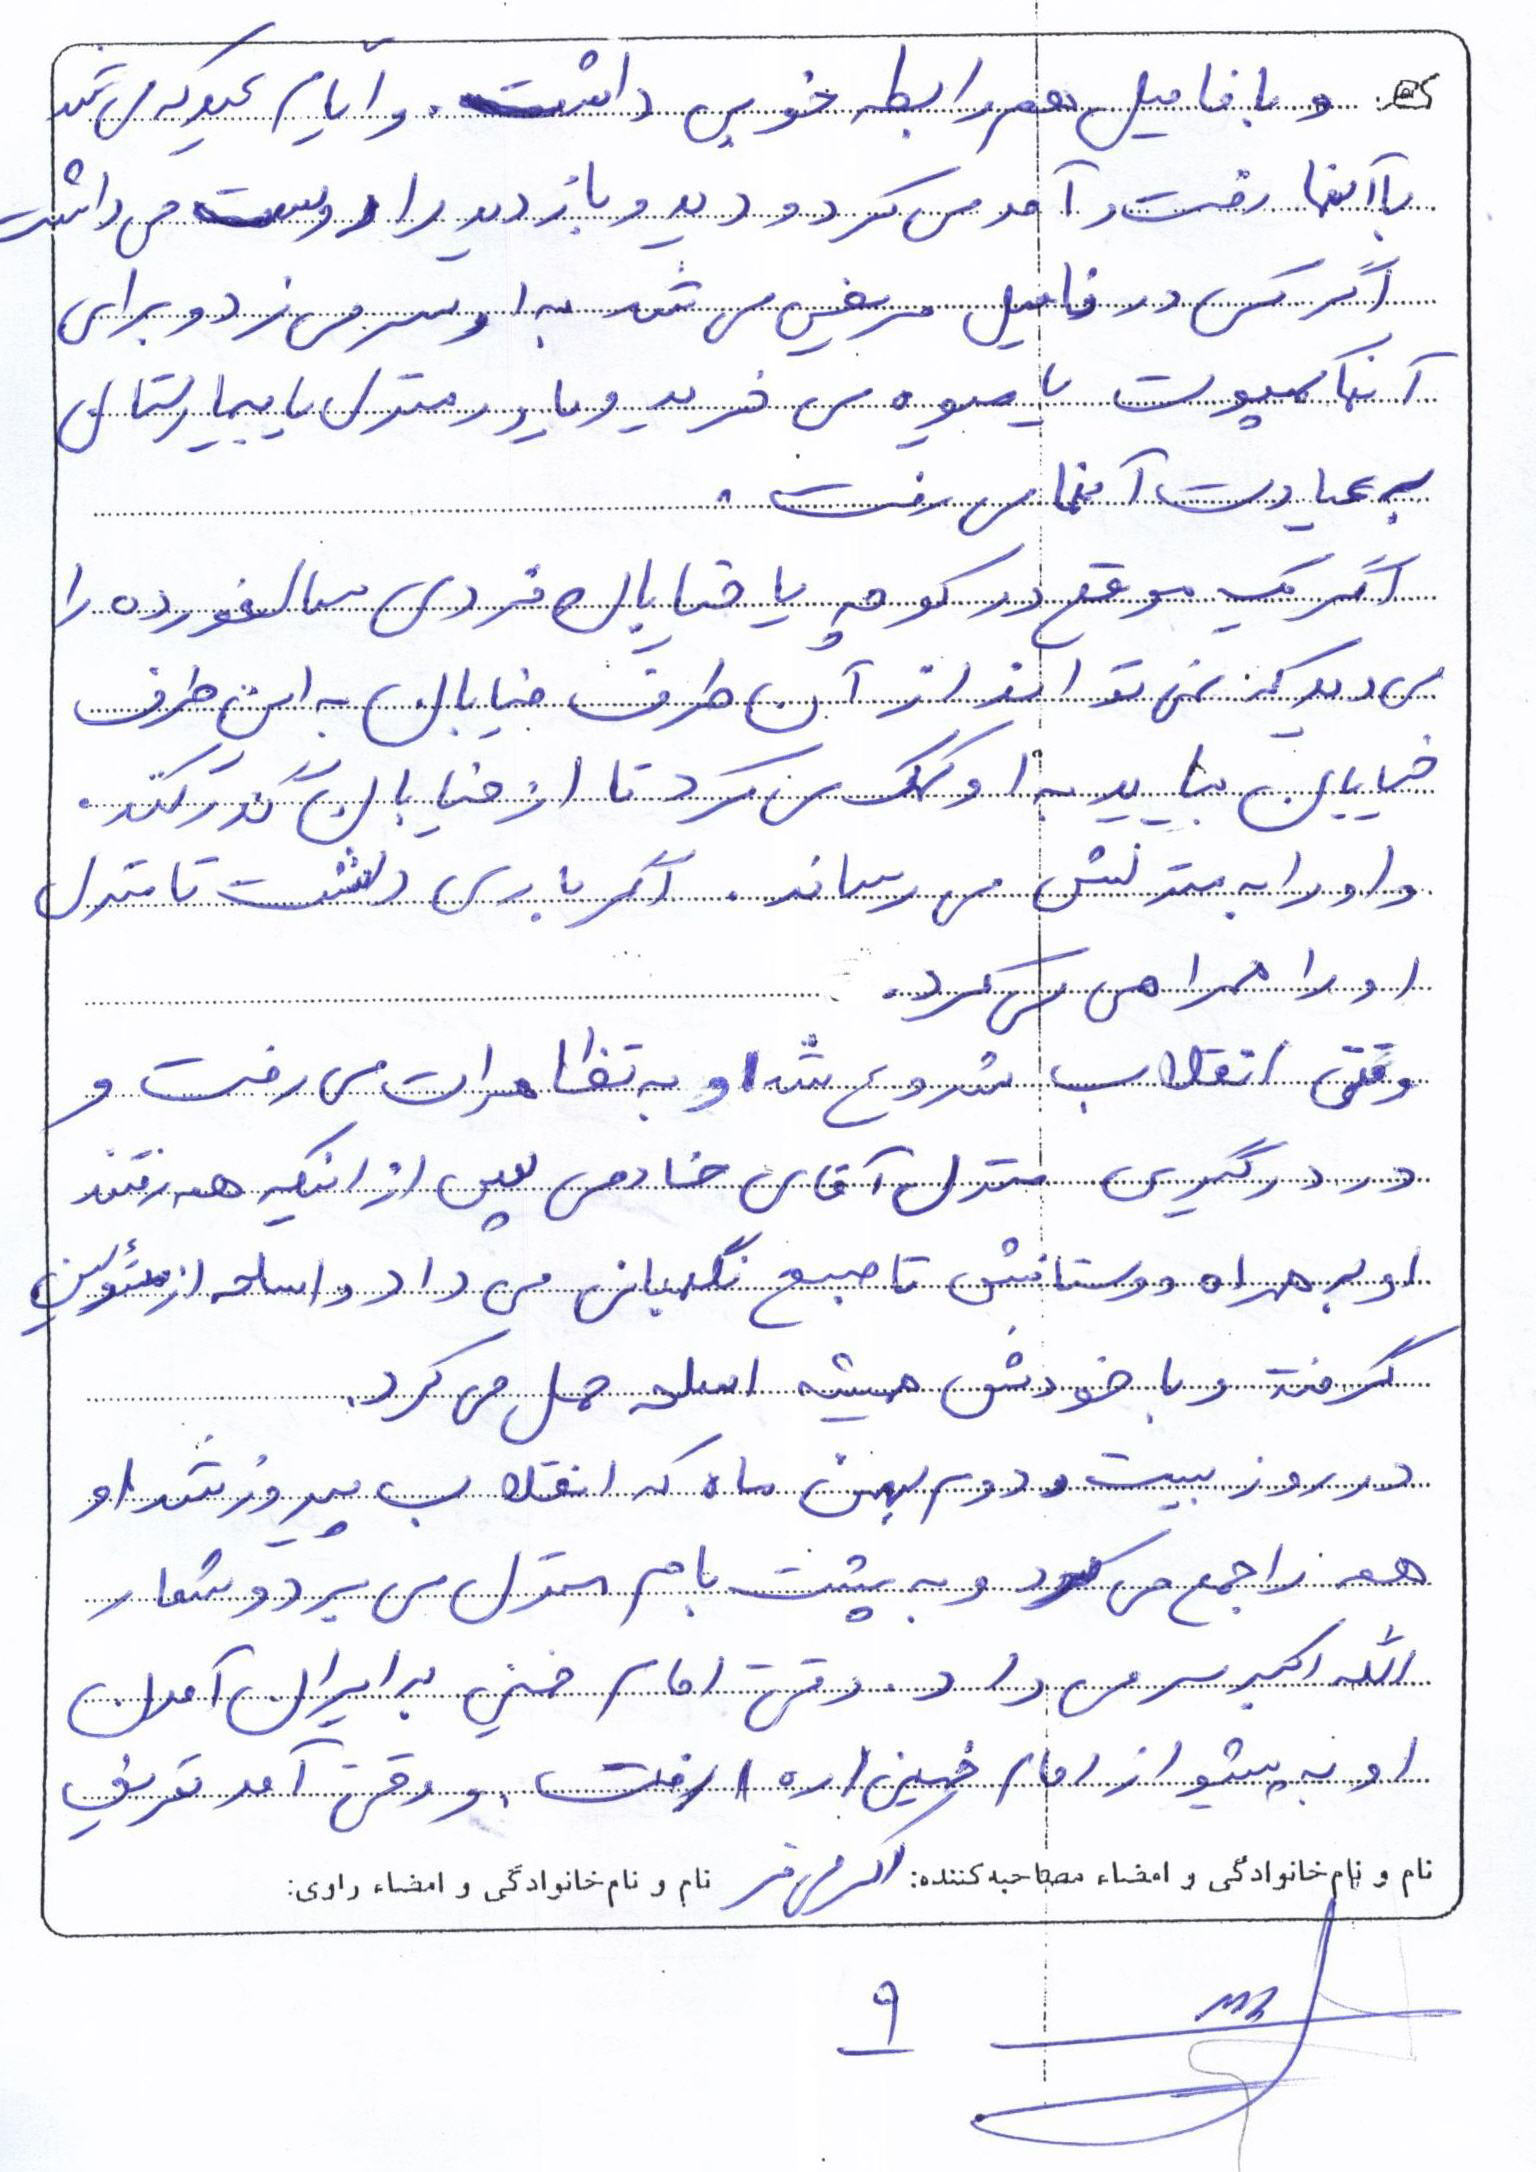 و با فامیل هم رابطه خوبی داشت. و ایام عید که می شد
با آنها رفت و آمد می کرد و دید و بازدید را دوست می داشت
اگر کسی در فامیل مریض می شد به او سر می زد و برای
آنها کمپوت یا میوه می خرید و یا در منزل یا بیمارستان
به عیادت آنها می رفت.
اگر یک موقع در کوچه یا خیابان فردی سالخورده را
می دید که نمی تواند از آن طرف خیابان به این طرف
خیابان بیاید به او کمک می کرد تا از خیابان گذر کند.
و او را به منزلش می رساند. اگر باری داشت تا منزل
او را همراهی می کرد.
وقتی انقلاب شروع شد او به تظاهرات می رفت و
در درگیری منزل آقای خادمی پس از اینکه همه رفتند
او به همراه دوستانش تا صبح نگهبانی می داد و اسلحه از مسئولین
گرفته و با خودش همیشه اسلحه حمل می کرد.
در روز بیست و دوم بهمن ماه که انقلاب پیروز شد او
همه را جمع می کرد و به پشت بام منزل می برد و شعار
الله اکبر سر می داد. وقتی امام خمینی به ایران آمدن
او به پیشواز امام خمینی (ره) رفت. و وقتی آمد تعریف
نام و نام خانوادگی و امضاء مصاحبه کننده: نام و نام خانوادگی و امضاء راوی:
۹